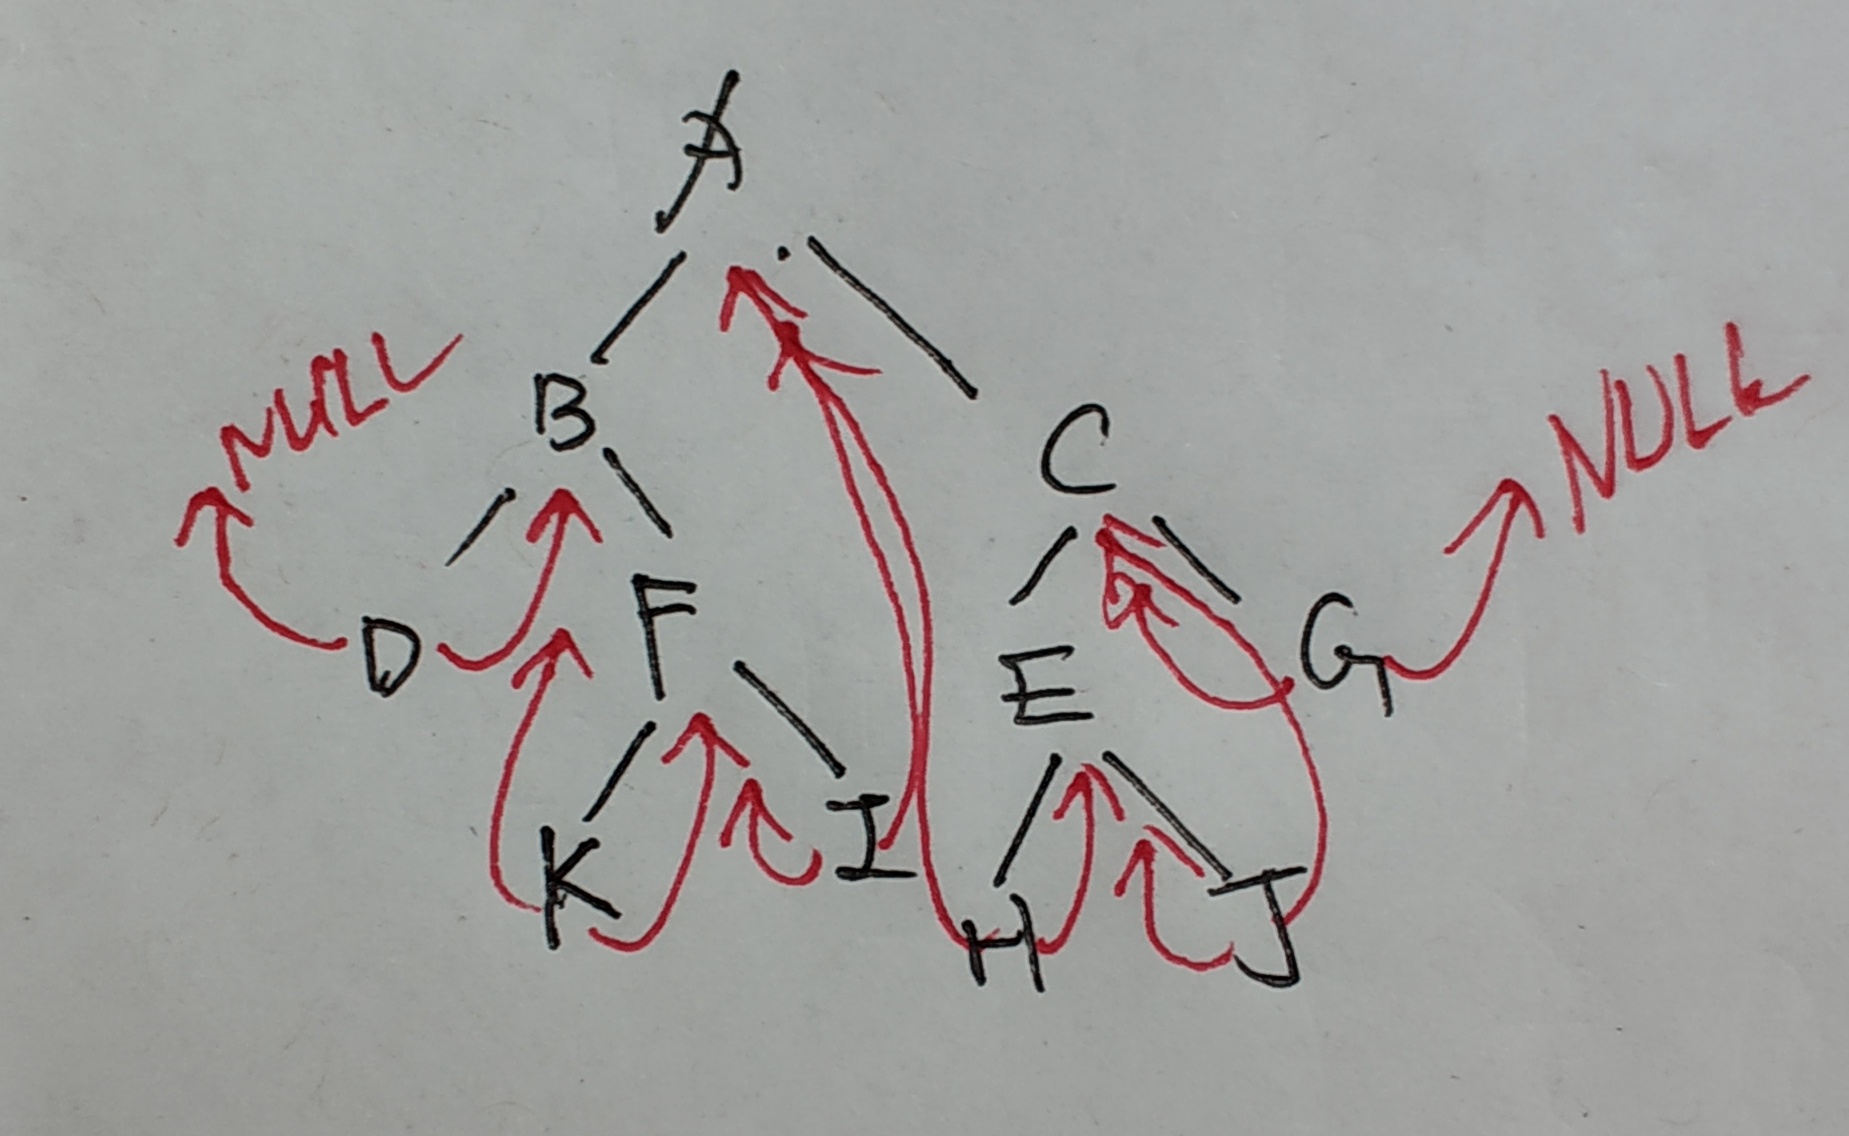 A
NULL
B
C
NULL
D
F
E
G
K
I
H
J